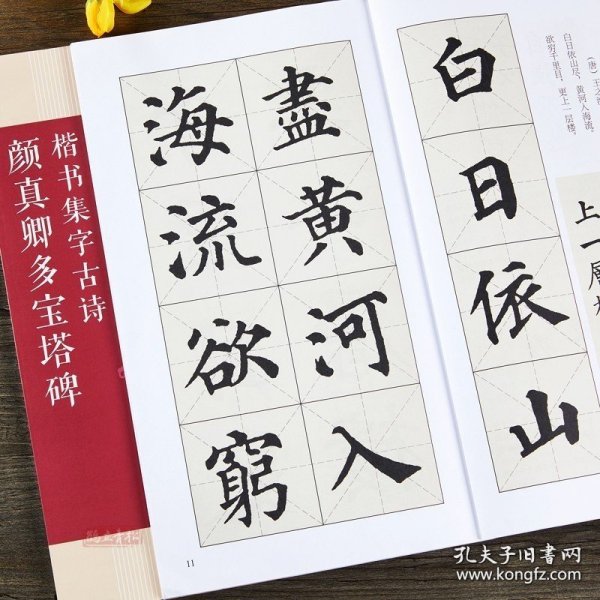 楷书集字古诗
颜真卿多宝塔碑
白日依山
盡黄河入
海流欲窮
11
白日依山尽，黄河入海流。
欲穷千里目，更上一层楼。
上一層
孔夫子旧书网
www.kongfz.com